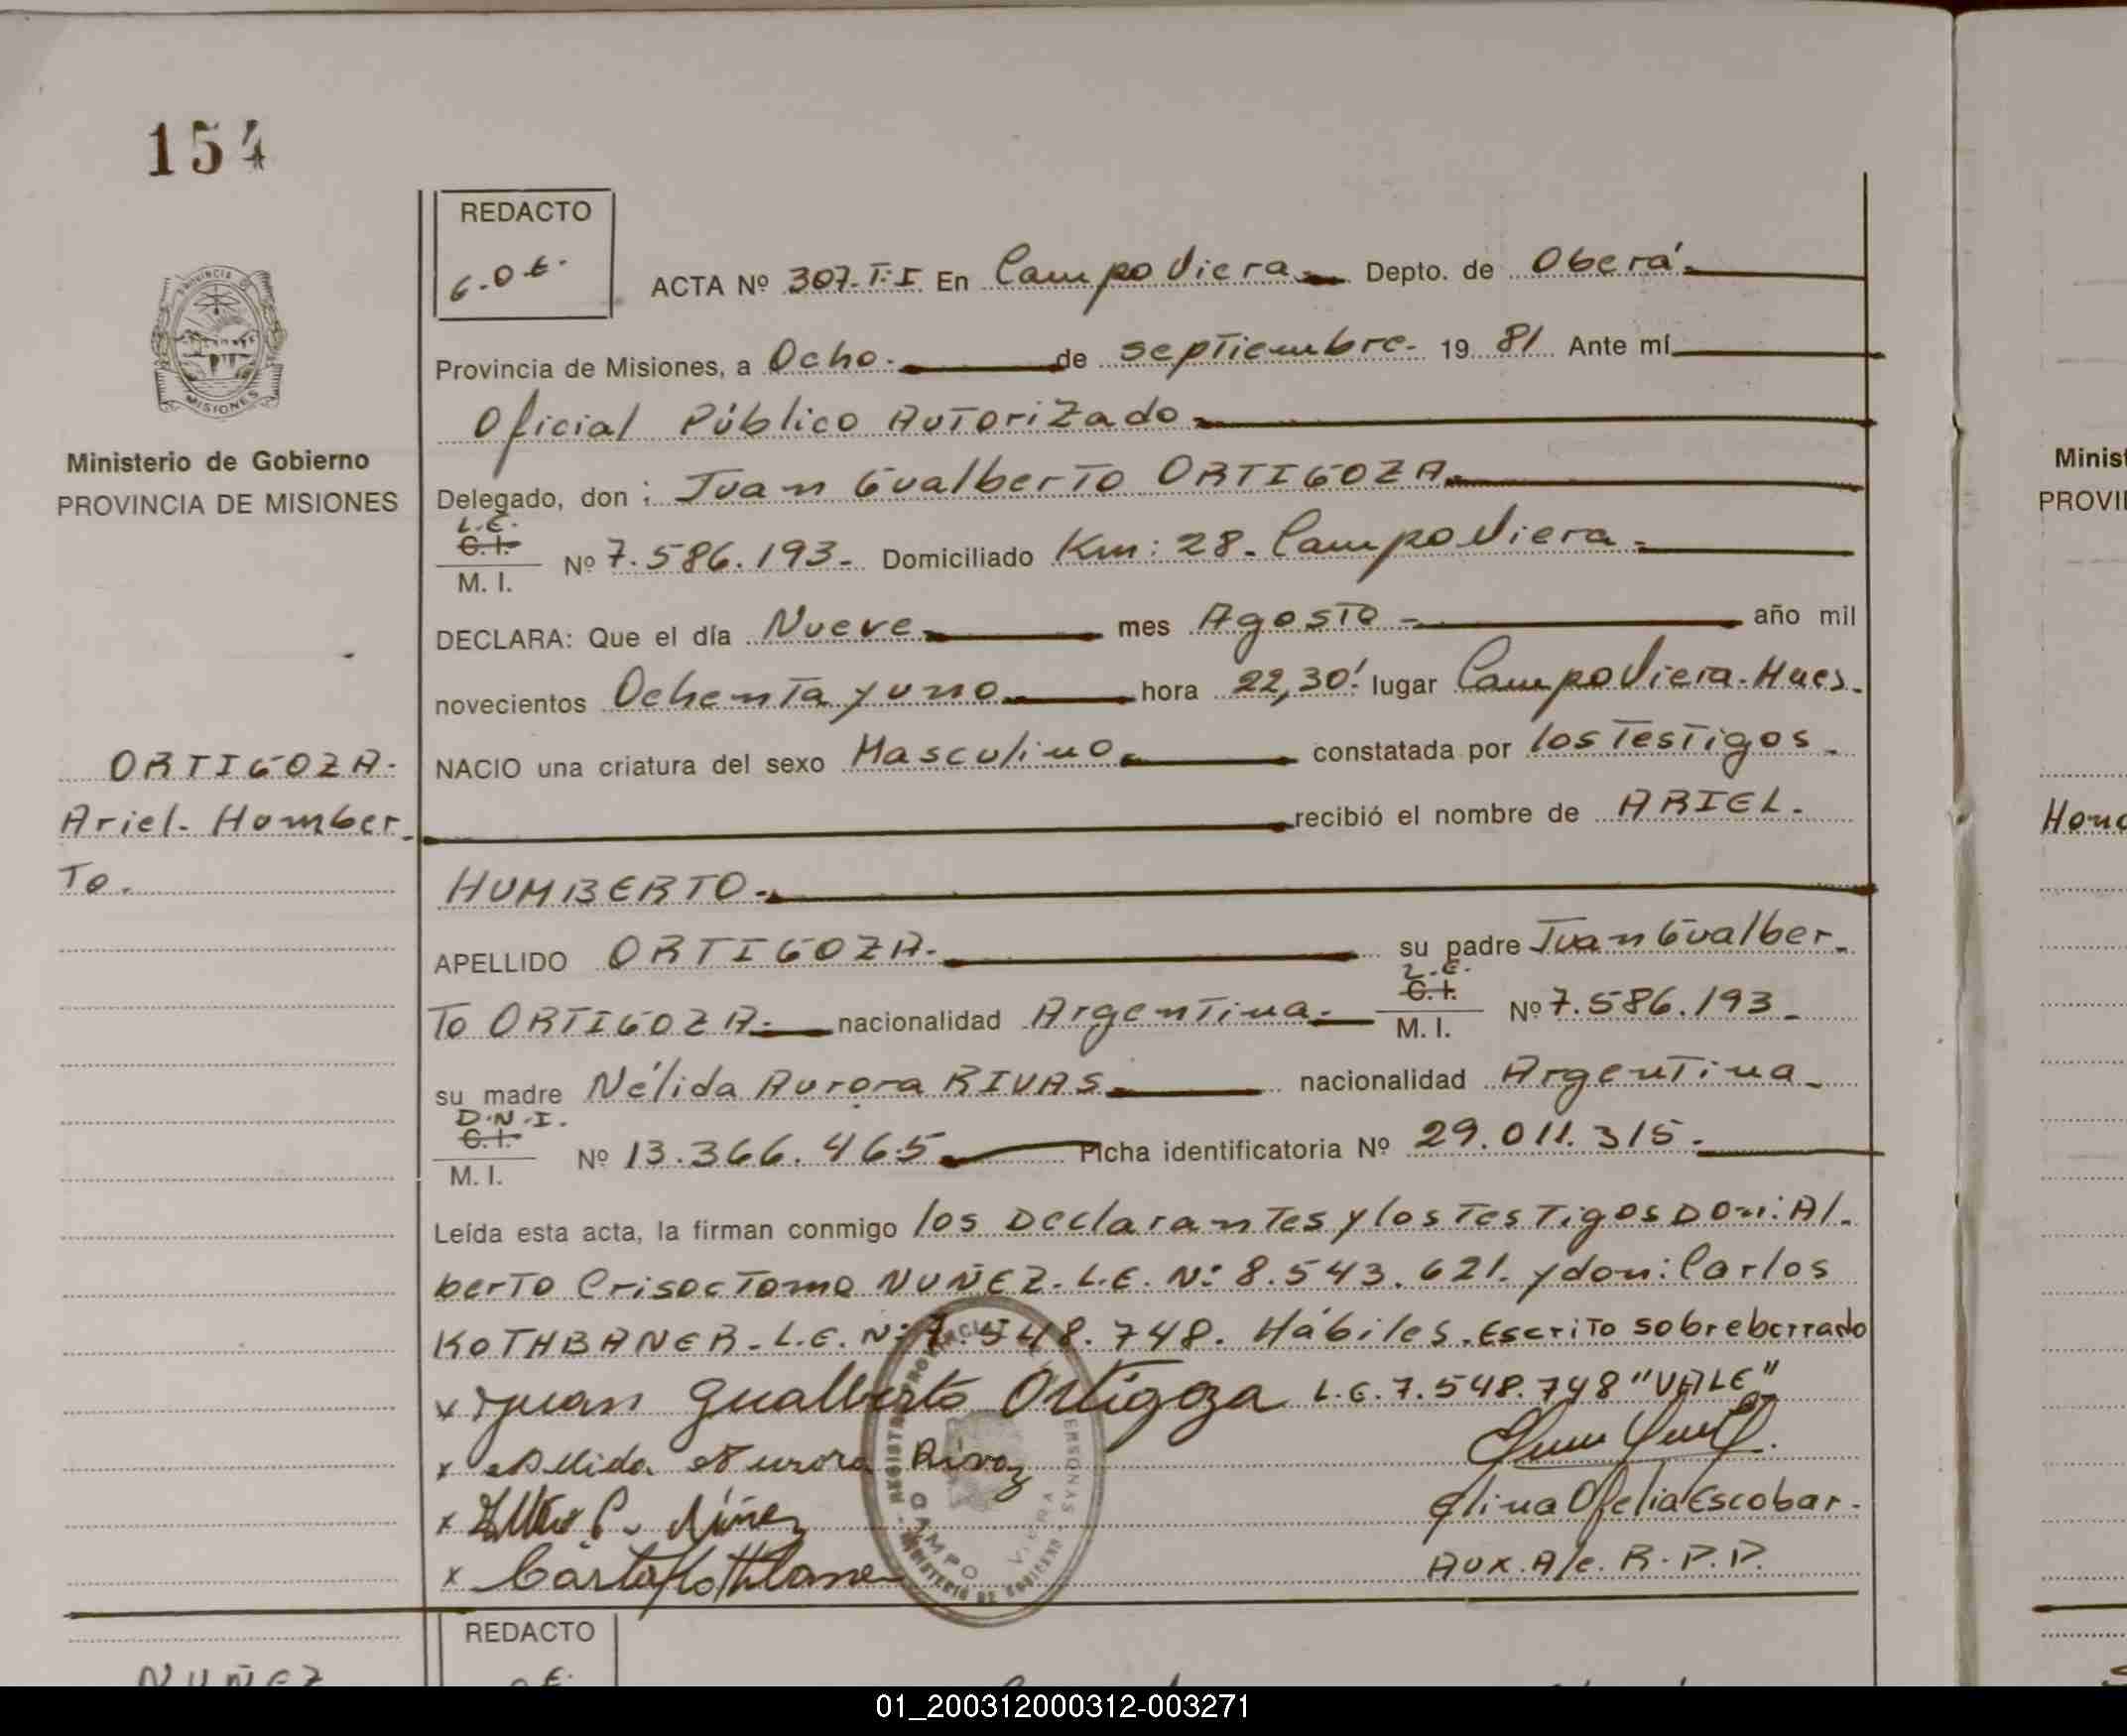 154
REDACTO
G.O.E.
ACTA Nº 307.T:I En Campo Viera Depto. de Oberá
Provincia de Misiones, a Ocho. de septiembre. 19 81 Ante mí
Oficial Público Autorizado
Ministerio de Gobierno
PROVINCIA DE MISIONES
Delegado, don : Juan Gualberto ORTIGOZA
L.E.
C.I.
M. I.
Nº 7.586.193. Domiciliado Km: 28. Campo Viera.
DECLARA: Que el día Nueve mes Agosto año mil
novecientos Ochenta y uno hora 22,30' lugar Campo Viera. Mnes.
NACIO una criatura del sexo Masculino constatada por los Testigos
recibió el nombre de ARIEL.
HUMBERTO.
ORTIGOZA.
Ariel. Humber
To.
APELLIDO ORTIGOZA. su padre Juan Gualber
L.E.
C.I.
To ORTIGOZA. nacionalidad Argentina. M. I. Nº 7.586.193
su madre Nélida Aurora RIVAS nacionalidad Argentina
D.N.I.
C.I.
M. I.
Nº 13.366.465 Ficha identificatoria Nº 29.011.315.
Leída esta acta, la firman conmigo los Declarantes y los Testigos Don: Al
berto Crisoctomo NUÑEZ. L.E. Nº 8.543.621. y don: Carlos
KOTHBANER. L.E. Nº 7.548.748. Hábiles. Escrito sobreborrado
x Juan Gualberto Ortigoza L.E. 7.548.748 "VALE"
x Nelida Aurora Rivaz
x Alberto C. Núñez
Elina Ofelia Escobar.
x
Aux. A/c. R.P.P.
REGISTRO PROVINCIAL PERSONAS
CAMPO VIERA
MINISTERIO DE GOBIERNO
REDACTO
NUÑEZ
Minist
PROVI
Hono
01_200312000312-003271